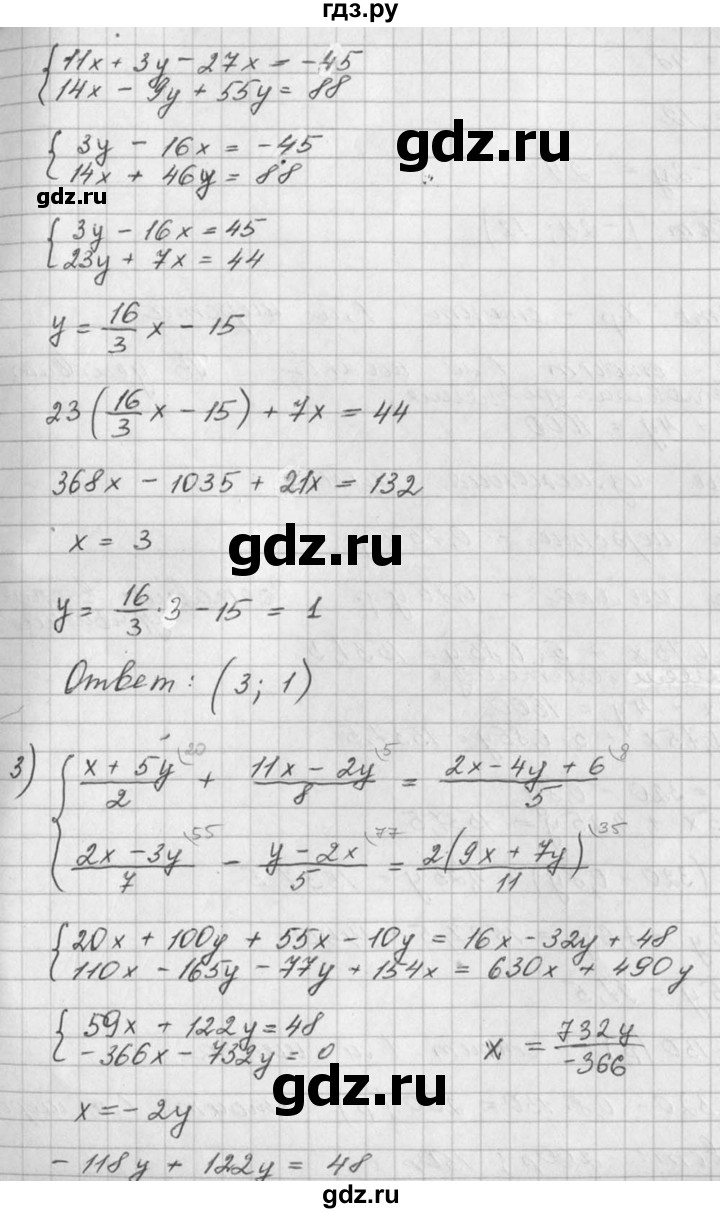 гдз.ру
{ 11x + 3y - 27x = -45
14x - 9y + 55y = 88
{ 3y - 16x = -45
14x + 46y = 88
gdz.ru
gdz.ru
{ 3y - 16x = 45
23y + 7x = 44
y = 16/3 x - 15
23 (16/3 x - 15) + 7x = 44
368x - 1035 + 21x = 132
x = 3
gdz.ru
y = 16/3 · 3 - 15 = 1
Ответ: (3; 1)
3) { (x + 5y)/2 \20 + (11x - 2y)/8 \5 = (2x - 4y + 6)/5 \8
(2x - 3y)/7 \55 - (y - 2x)/5 \77 = 2(9x + 7y)/11 \35
{ 20x + 100y + 55x - 10y = 16x - 32y + 48
110x - 165y - 77y + 154x = 630x + 490y
{ 59x + 122y = 48
-366x - 732y = 0
x = 732y/-366
gdz.ru
x = -2y
-118y + 122y = 48
gdz.ru